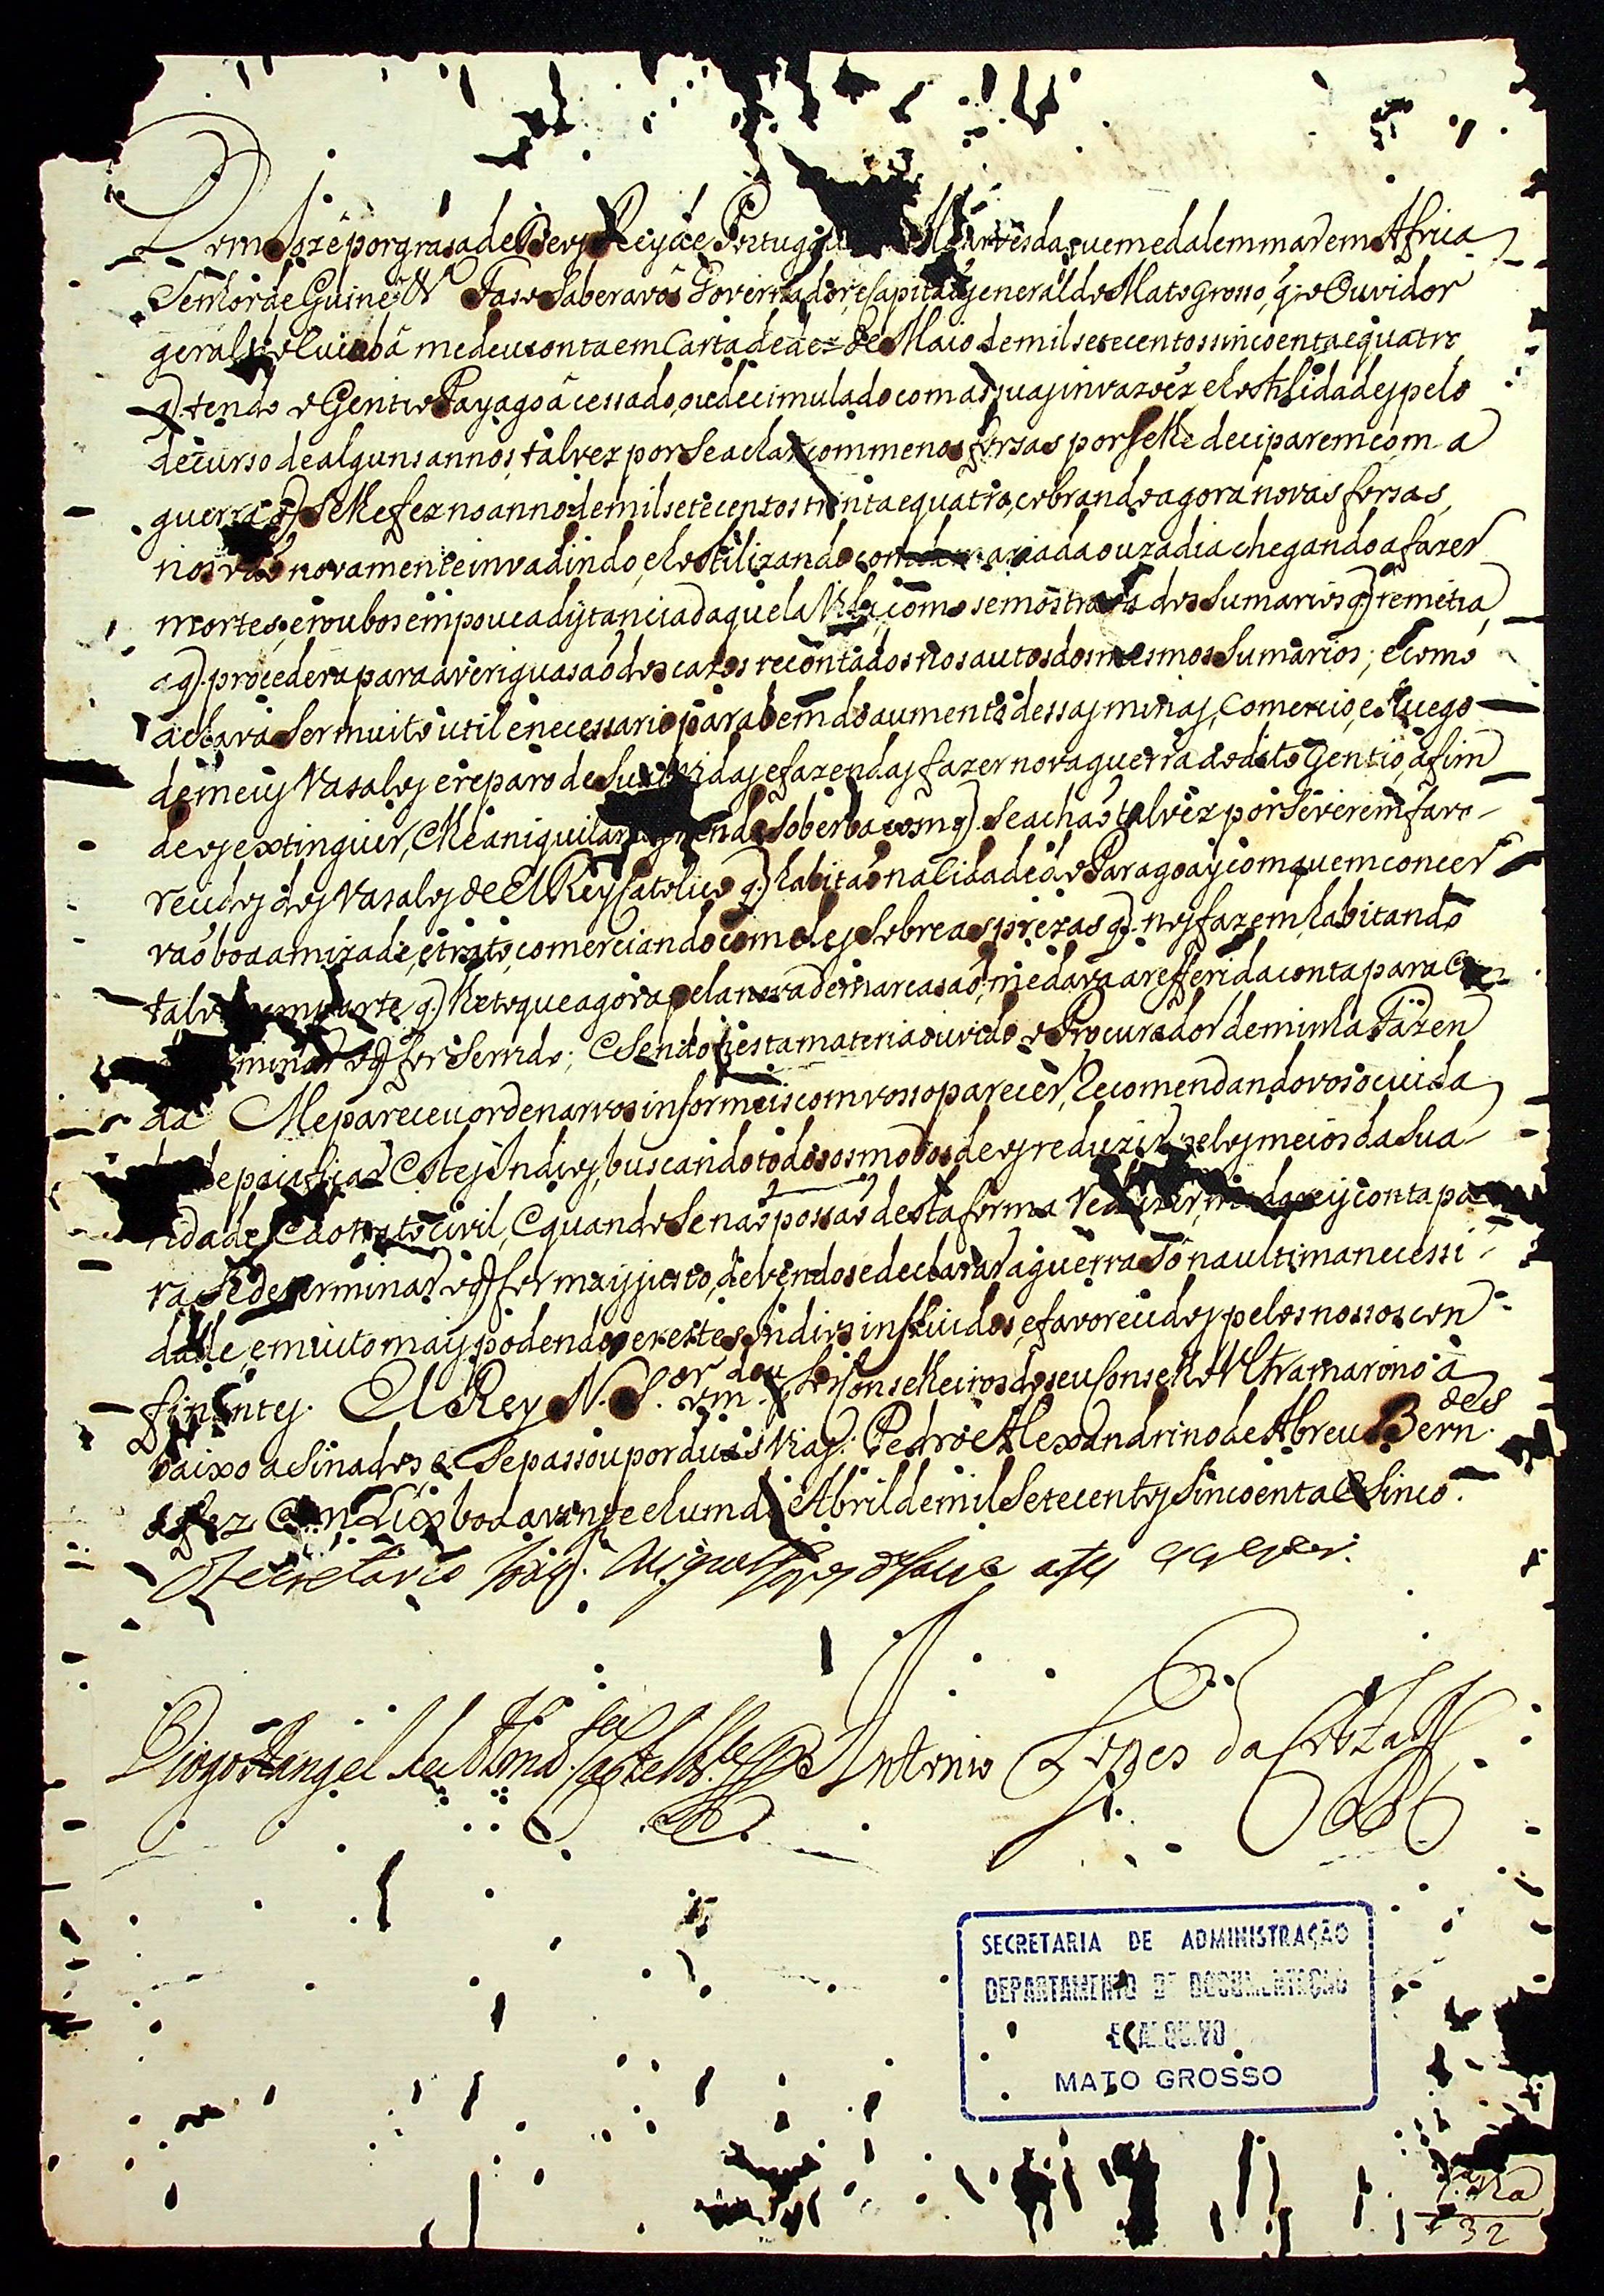 Dom Jozê por grasa de Deos Rey de Portugal Algarves daquem e dalem mar em Africa
Senhor de Guinê &ª Faso Saber a vôs Governador, e Capitaõ general do Mato grosso, q̃ o Ouvidor
geral do Cuiabâ me deu conta em Carta de des de Maio de mil setecentos sincoenta e quatro
q̃ tendo o Gentio Payagoâ cessado, ou decimulado com as suas invazoẽs, e hostilidades pelo
decurso de alguns annos, talvez por Se achar com menos forsas por se lhe deciparem com a
guerra q̃ Se lhe fez no anno de mil setecentos trinta e quatro, cobrando agora novas forsas,
nos vaõ novamente invadindo, e hostilizando com ouzadia chegando a fazer
mortes, e roubos em pouca distancia daquela Vila, como se mostrava dos Sumarios q̃ remetia,
e q̃ procedera para averiguasaõ dos cazos recontados nos autos dos mesmos Sumarios; e como
achava Ser muito util e necessario para bem do aumento dessas minas, Comercio, e Socego
de meus Vasalos e reparo de Suas vidas e fazendas fazer nova guerra ao dito Gentio, a fim
de os extinguir, e lhe aniquilar Soberba com q̃ Se achaõ talvez por Se verem favo-
recidos dos Vasalos de El Rey Catolico q̃ habitaõ na Cidade do Paragoay com quem concer
vaõ boa amizade, e trato, comerciando com eles Sobre as prezas q̃ nos fazem, habitando
talvez em parte q̃ lhe toque agora pela nova demarcasaõ, me dava a refferida conta para
minar o q̃ for Servido; e Sendo nesta materia ouvido o Procurador de minha Fazen
da Me pareceu ordenarvos informeis com vosso parecer, Recomendandovos o cuida
de pacificar estes Indios, buscando todos os modos de os reduzir pelos meios da Sua
vidade e do trato civil, e quando Se naõ possaõ desta forma Reduzir, me dareis conta pa
ra Se determinar o q̃ for mais justo, devendose declarar a guerra Sô na ultima necessi
dade, e muito mais podendo ser estes Indios influidos, e favorecidos pelos nossos con
finantes. El Rey N. S.or o m.dou pelos Conselheiros do seu Conselho Ultramarino a
baixo asinados e Se passou por duas vias. Pedro Alexandrino de Abreu Bern.des
a fez em Lixboa a vinte e hum de Abril de mil Setecentos Sincoenta e Sinco.
O Secretario Joaq. Miguel Lopes de Lavre a fes escrever.
Diogo Rangel de Alm.da Castelbr.co Antonio Lopes da Costa
SECRETARIA DE ADMINISTRAÇÃO
DEPARTAMENTO DE DOCUMENTAÇÃO
E ARQUIVO
MATO GROSSO
1.ª Via
32